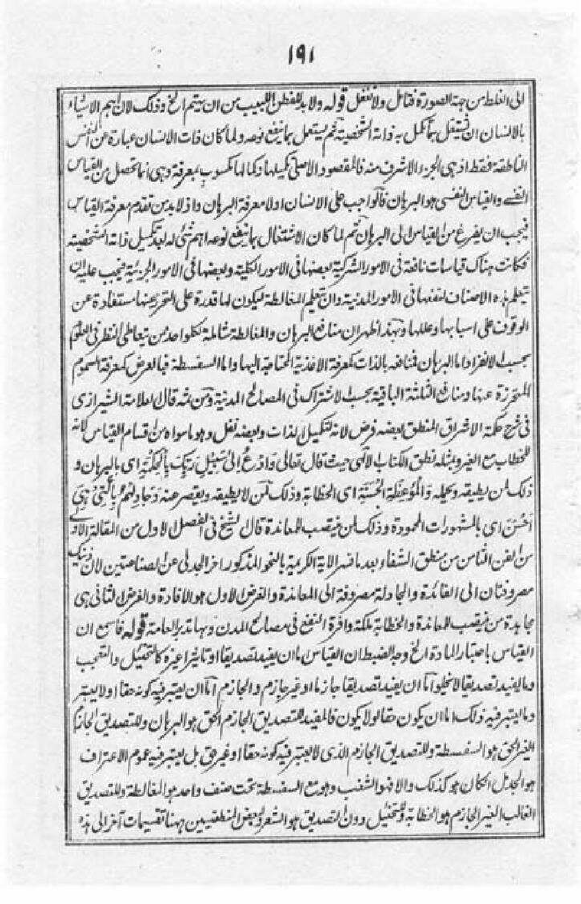 ١٩١
الى الغلط من جهة الصورة فتامل ولا تغفل قوله ولا بد للفطن اللبيب من ان يهتم الخ وذلك لان اهم الاشياء
بالانسان ان يشتغل بما يكمل به ذاته الشخصية ثم يشتغل بما ينفع نوعه ولما كان ذات الانسان عبارة عن النفس
الناطقة فقط اذ هى الجزء الاشرف منه فالمقصود الاصلى تكميلها وكمالها مكسوب بمعرفة وهى انما تحصل من القياس
والقياس اليقينى هو البرهان فالواجب على الانسان اولا معرفة البرهان واذ لا بد من تقدم معرفة القياس
فيجب ان يفرغ من القياس الى البرهان ثم لما كان الاشتغال بما ينفع نوعه اهم شئ له بعد تكميل ذاته الشخصية
فكانت هناك قياسات نافعة فى الامور الشركية بعضها فى الامور الكلية وبعضها فى الامور الجزئية فيجب عليه ان
يتعلم هذه الاصناف لنفعها فى الامور المدنية وان يتعلم المغالطة ليكون لها قدرة على التحرز عنها مستفادة عن
الوقوف على اسبابها وعللها وبهذا ظهر ان منافع البرهان والمغالطة شاملة لكل واحد من يتعاطى النظر فى العلوم
بحسب الانفراد اما البرهان فمنافعه بالذات كمعرفة الاغذية المحتاجة اليها واما السفسطة فبالعرض كمعرفة السموم
المتحرزة عنها ومنافع الثلثة الباقية بحسب الاشتراك فى المصالح المدنية ومن ثمه قال العلامة الشيرازى
فى شرح حكمة الاشراق المنطق بعضه فرض لانه لتكميل الذات وبعضه نفل وهو ما سواه من اقسام القياس لانه
للخطاب مع الغير وبمثله نطق الكتاب الالهى حيث قال تعالى وَادْعُ اِلىٰ سَبِيْلِ رَبِّكَ بِالْحِكْمَةِ اى بالبرهان و
ذلك لمن يطيقه ويحمله وَالْمَوْعِظَةِ الْحَسَنَةِ اى الخطابة وذلك لمن لا يطيقه ويقصر عنه وَجَادِلْهُمْ بِالَّتِىْ هِىَ
اَحْسَنُ اى بالمشهورات المحمودة وذلك لمن ينتصب للمعاندة قال الشيخ فى الفصل الاول من المقالة الاولى
من الفن الثامن من منطق الشفاء بعد ما فسر الاية الكريمة بالنحو المذكور اخر الجدلى عن الصناعتين لان تينك
مصروفتان الى الفائدة والمجادلة مصروفة الى المعاندة والغرض الاول هو الافادة والغرض الثانى هى
مجاهدة من ينتصب للمعاندة والخطابة ملكة وافرة النفع فى مصالح المدن وبها تدبر العامة قوله فاسمع ان
القياس باعتبار المادة الخ وجه الضبط ان القياس اما ان يفيد تصديقا او تاثيرا غيره كالتخييل والتعجب
وما يفيد تصديقا لا يخلو اما ان يفيد تصديقا جازما او غير جازم والجازم اما ان يعتبر فيه كونه حقا او لا يعتبر
وما يعتبر فيه ذلك اما ان يكون حقا او لا يكون فالمفيد للتصديق الجازم الحق هو البرهان وللتصديق الجازم
الغير الحق هو السفسطة وللتصديق الجازم الذى لا يعتبر فيه كونه حقا او غير حق بل يعتبر فيه عموم الاعتراف
هو الجدل ان كان هو كذلك والا فهو الشغب وهو مع السفسطة تحت صنف واحد هو المغالطة وللتصديق
الغالب الغير الجازم هو الخطابة وللتخييل دون التصديق هو الشعر وبعض المنطقيين ههنا تقسيمات اخر الى هذه